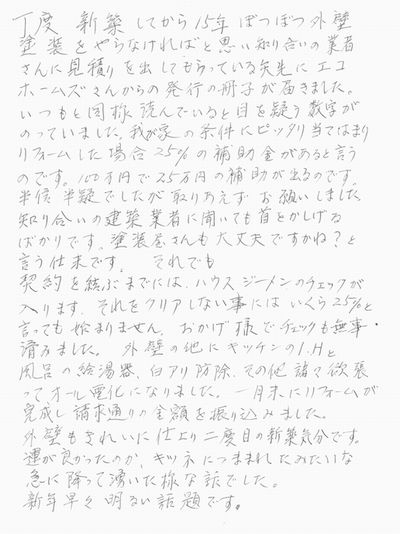 丁度 新築してから15年ぼつぼつ外壁
塗装をやらなければと思い知り合いの業者
さんに見積りを出してもらっている矢先にエコ
ホームズさんからの発行の冊子が届きました。
いつもと同様読んでいると目を疑う数字が
のっていました。我が家の条件にピッタリ当てはまり
リフォームした場合25%の補助金があると言う
のです。100万円で25万円の補助が出るのです。
半信半疑でしたが取りあえずお願いしました。
知り合いの建築業者に聞いても首をかしげる
ばかりです。塗装屋さんも大丈夫ですかね?と
言う仕末です。 それでも
契約を結ぶまでには、ハウスジーメンのチェックが
入ります。それをクリアしない事にはいくら25%と
言っても始まりません。おかげ様でチェックも無事・
済みました。 外壁の他にキッチンのI.Hと
風呂の給湯器、白アリ防除、その他諸々欲張
ってオール電化になりました。一月末にリフォームが
完成し請求通りの金額を振り込みました。
外壁もきれいに仕上り二度目の新築気分です。
運が良かったのか、キツネにつままれたみたいな
急に降って湧いた様な話でした。
新年早々明るい話題です。